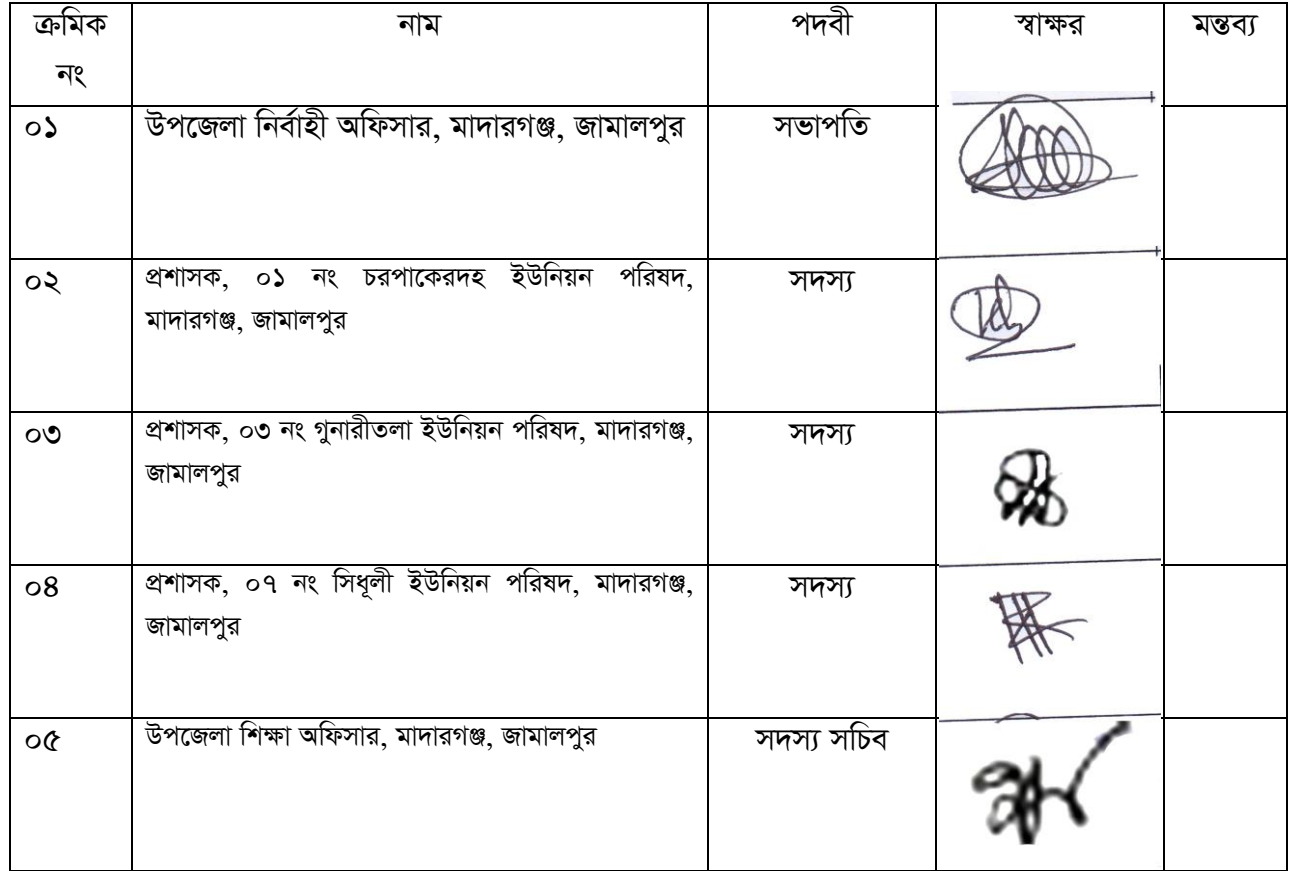 ক্রমিক নাম পদবী স্বাক্ষর মন্তব্য
নং
০১ উপজেলা নির্বাহী অফিসার, মাদারগঞ্জ, জামালপুর সভাপতি
০২ প্রশাসক, ০১ নং চরপাকেরদহ ইউনিয়ন পরিষদ, সদস্য
মাদারগঞ্জ, জামালপুর
০৩ প্রশাসক, ০৩ নং গুনারীতলা ইউনিয়ন পরিষদ, মাদারগঞ্জ, সদস্য
জামালপুর
০৪ প্রশাসক, ০৭ নং সিধূলী ইউনিয়ন পরিষদ, মাদারগঞ্জ, সদস্য
জামালপুর
০৫ উপজেলা শিক্ষা অফিসার, মাদারগঞ্জ, জামালপুর সদস্য সচিব